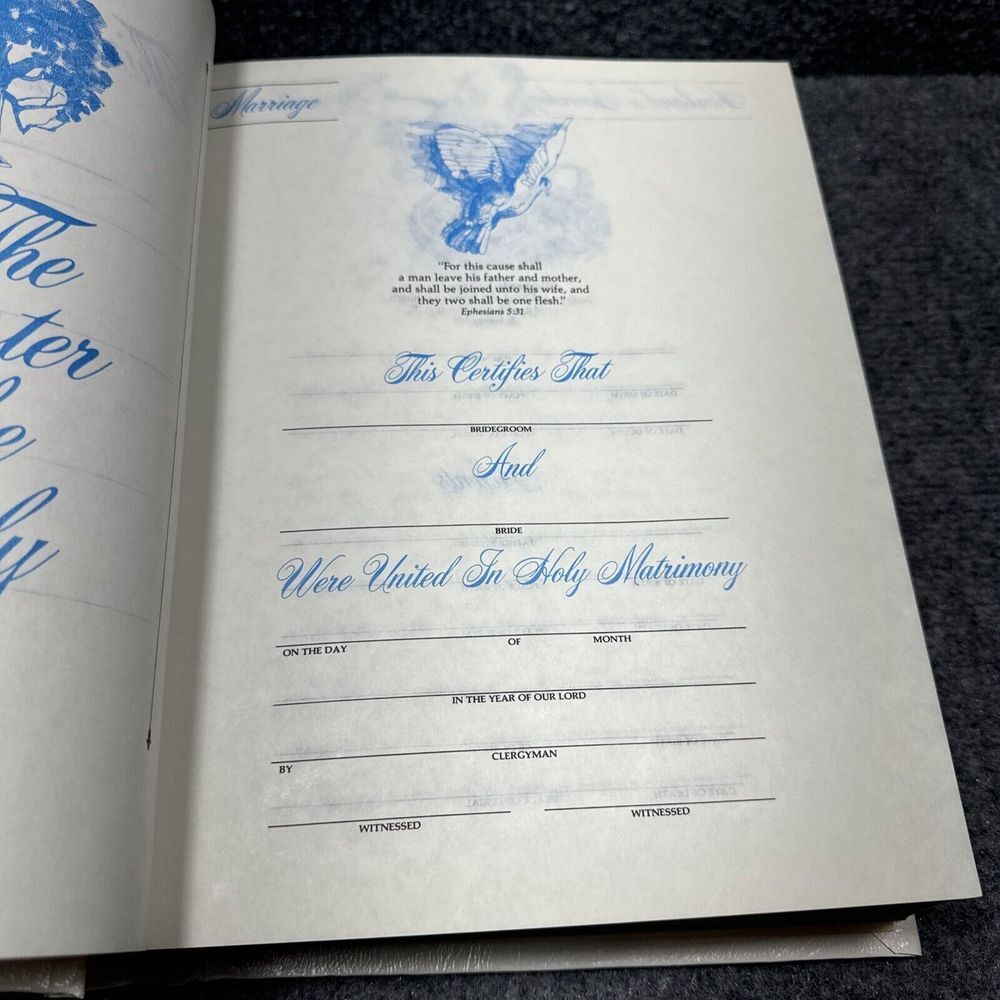 The
ter
Marriage
"For this cause shall
a man leave his father and mother,
and shall be joined unto his wife, and
they two shall be one flesh."
Ephesians 5:31
This Certifies That
BRIDEGROOM
And
BRIDE
Were United In Holy Matrimony
ON THE DAY OF MONTH
IN THE YEAR OF OUR LORD
BY CLERGYMAN
WITNESSED WITNESSED